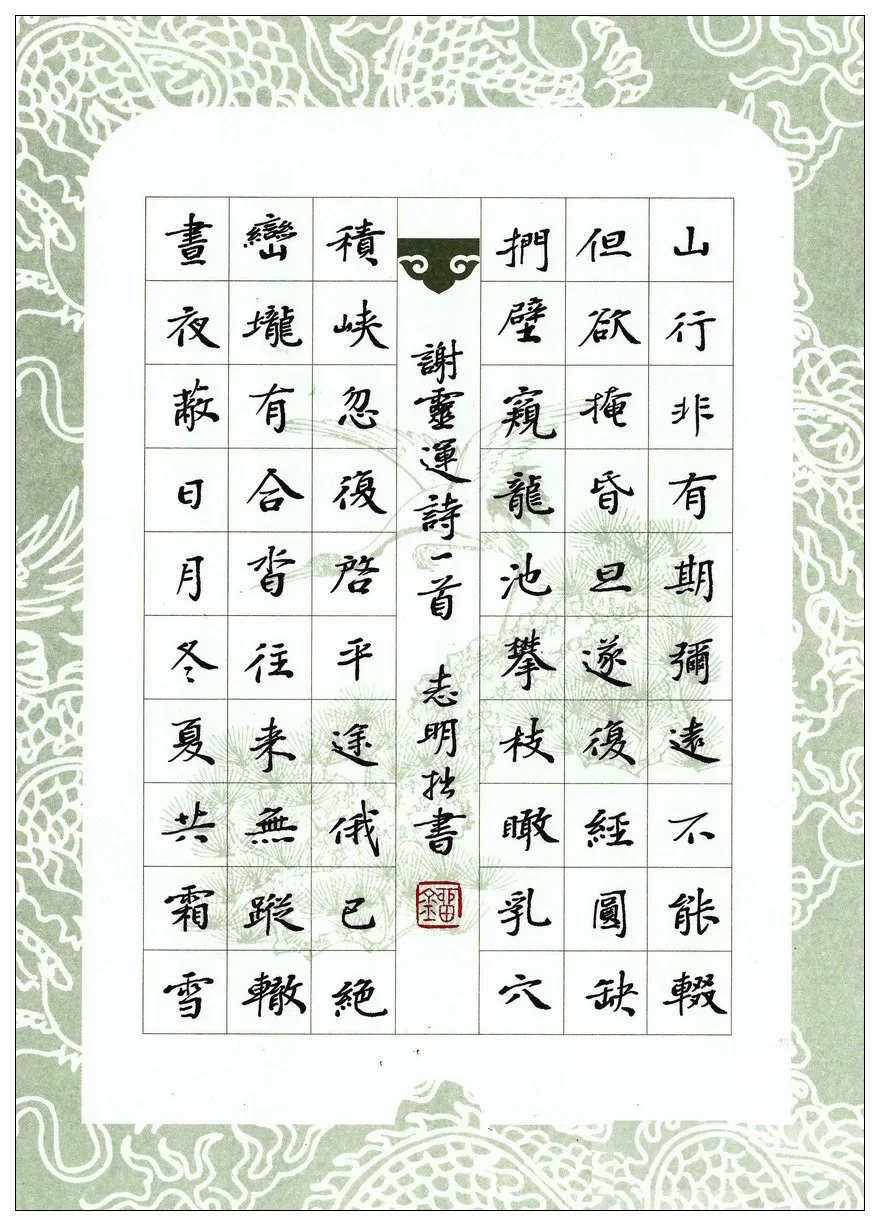 山行非有期彌遠不能輟
但欲掩昏旦遂復經圓缺
捫壁窺龍池攀枝瞰乳穴
謝靈運詩一首 志明拙書
積峽忽復啓平途俄已絶
巒壠有合沓往来無蹤轍
晝夜蔽日月冬夏共霜雪